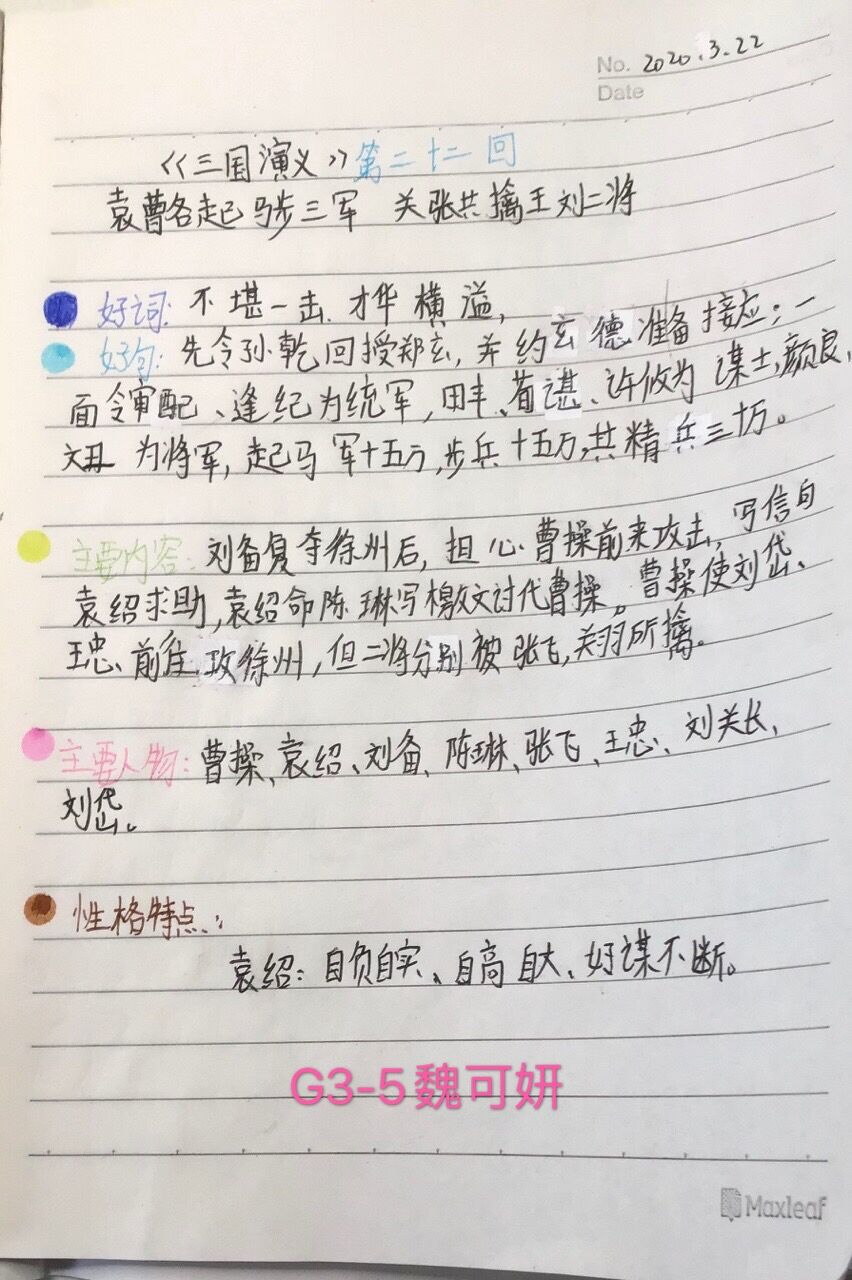 No. 2020.3.22
Date
《三国演义》第二十二回
袁曹各起马步三军 关张共擒王刘二将
好词：不堪一击、才华横溢，
好句：先令孙乾回授郑玄，并约玄德准备接应；一
面令审配、逢纪为统军，田丰、荀谌、许攸为谋士，颜良、
文丑 为将军，起马军十五万，步兵十五万，共精兵三十万。
主要内容：刘备复夺徐州后，担心曹操前来攻击，写信向
袁绍求助，袁绍命陈琳写檄文讨代曹操。曹操使刘岱、
王忠、前往攻徐州，但二将分别被张飞，关羽所擒。
主要人物：曹操、袁绍、刘备、陈琳、张飞、王忠、刘关长、
刘岱。
性格特点：
袁绍：自负自实、自高自大、好谋不断。
G3-5魏可妍
Maxleaf